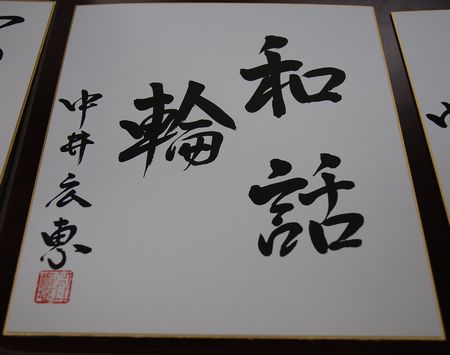 和話
輪
中井広恵